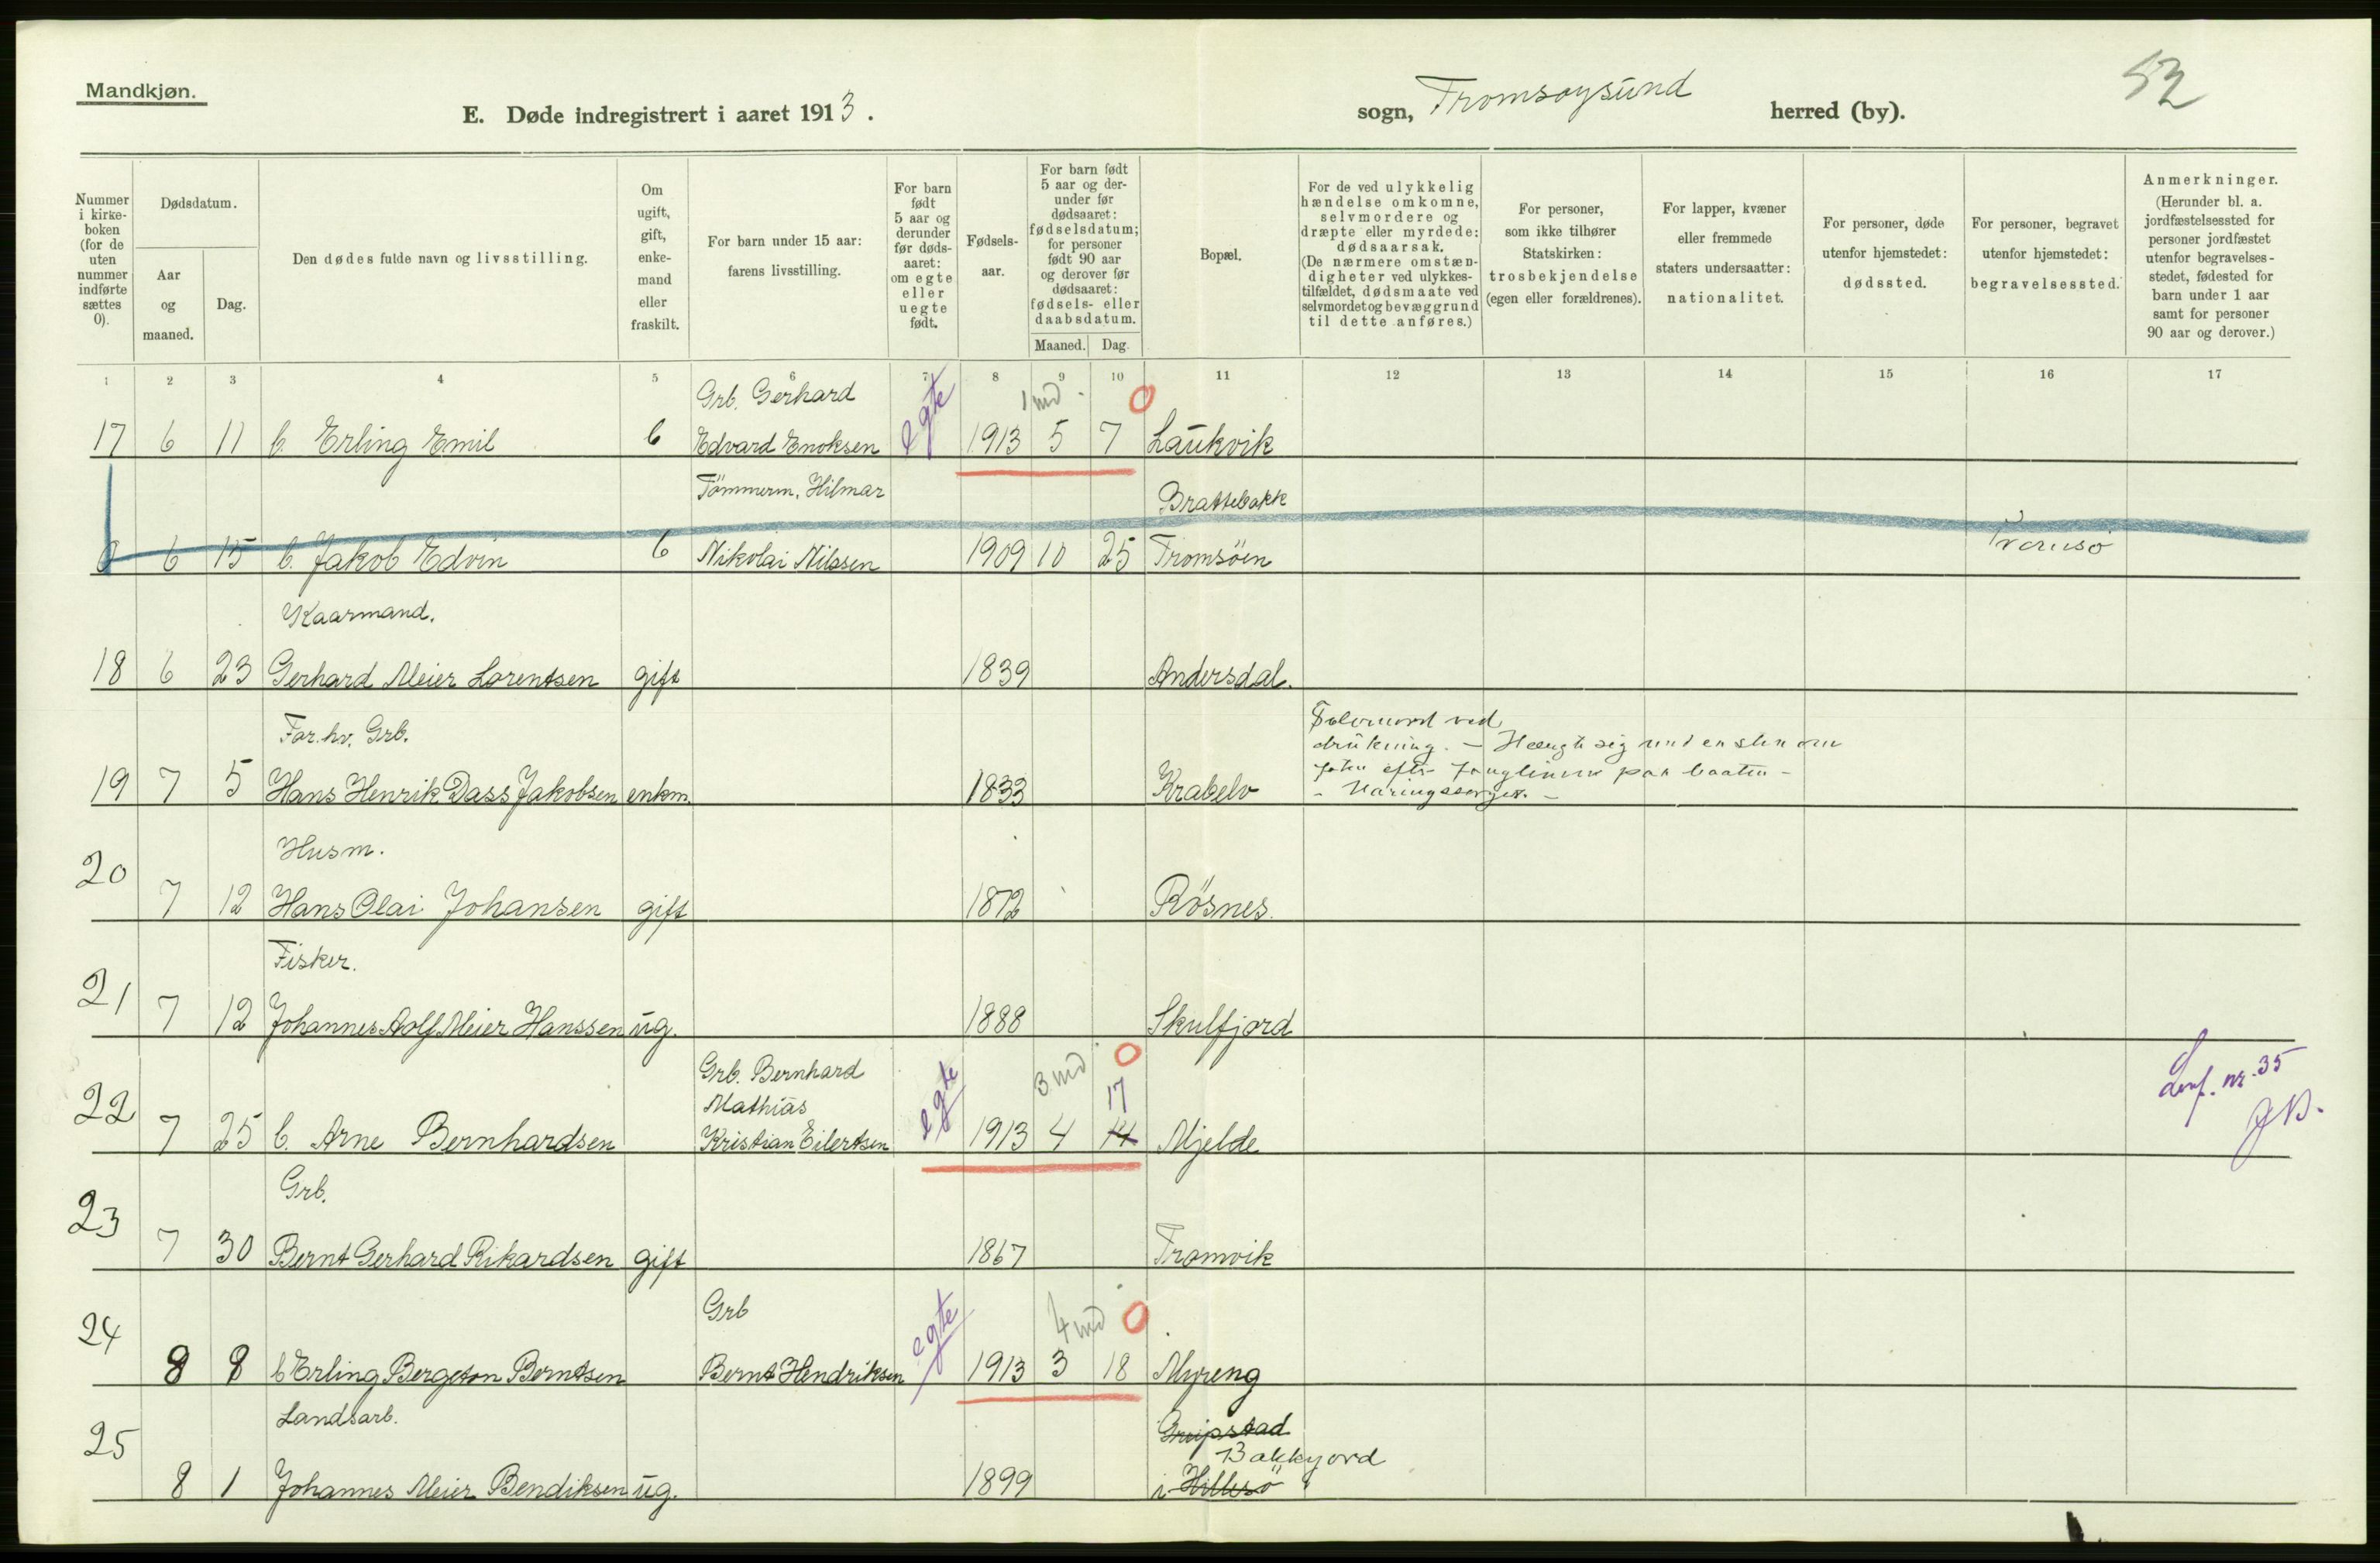 Mandkjøn.
E. Døde indregistrert i aaret 1913.
sogn, Tromsøysund herred (by).
52
Nummer i kirkeboken (for de uten nummer indførte sættes 0).
Dødsdatum.
Aar og maaned.
Dag.
Den dødes fulde navn og livsstilling.
Om ugift, gift, enkemand eller fraskilt.
For barn under 15 aar: farens livsstilling.
For barn født 5 aar og derunder før dødsaaret: om egte eller uegte født.
Fødselsaar.
For barn født 5 aar og derunder før dødsaaret: fødselsdatum; for personer født 90 aar og derover før dødsaaret: fødsels- eller daabsdatum.
Maaned. Dag.
Bopæl.
For de ved ulykkelig hændelse omkomne, selvmordere og dræpte eller myrdede: dødsaarsak. (De nærmere omstændigheter ved ulykkestilfældet, dødsmaate ved selvmordet og bevæggrund til dette anføres.)
For personer, som ikke tilhører Statskirken: trosbekjendelse (egen eller forældrenes).
For lapper, kvæner eller fremmede staters undersaatter: nationalitet.
For personer, døde utenfor hjemstedet: dødssted.
For personer, begravet utenfor hjemstedet: begravelsessted.
Anmerkninger. (Herunder bl. a. jordfæstelsessted for personer jordfæstet utenfor begravelsesstedet, fødested for barn under 1 aar samt for personer 90 aar og derover.)
1 2 3 4 5 6 7 8 9 10 11 12 13 14 15 16 17
Grb. Gerhard 1 md. 0
17 6 11 b. Erling Emil b Edvard Enoksen egte 1913 5 7 Laukvik
Tömmerm. Hilmar Brattebakk
0 6 15 b. Jakob Edvin b Nikolai Nilssen 1909 10 25 Tromsöen Tromsö
Kaarmand.
18 6 23 Gerhard Meier Lorentsen gift 1839 Andersdal.
Far.hv. Grb. Selvmord ved
drukning. – Hængte sig med en sten om
19 7 5 Hans Henrik Dass Jakobsen enkm. 1833 Krabelv
foten efter fanglinen paa baaten –
– Næringssorger. –
Husm.
20 7 12 Hans Olai Johansen gift 1872 Rösnes.
Fisker.
21 7 12 Johannes Aolf Meier Hanssen ug. 1888 Skulfjord
Grb. Bernhard 3 md 0
Mathias 17 nr. 35
22 7 25 b. Arne Bernhardsen Kristian Eilertsen egte 1913 4 14 Mjelde
Grb.
23 7 30 Bernt Gerhard Rikardsen gift 1867 Tromvik
Grb 4 md 0
24 8 8 b Erling Bergeton Berntsen Bernt Hendriksen egte 1913 3 18 Myreng
Landsarb. Greipstad
Bakkejord
25 8 1 Johannes Meier Bendiksen ug. 1899 i Hillesö